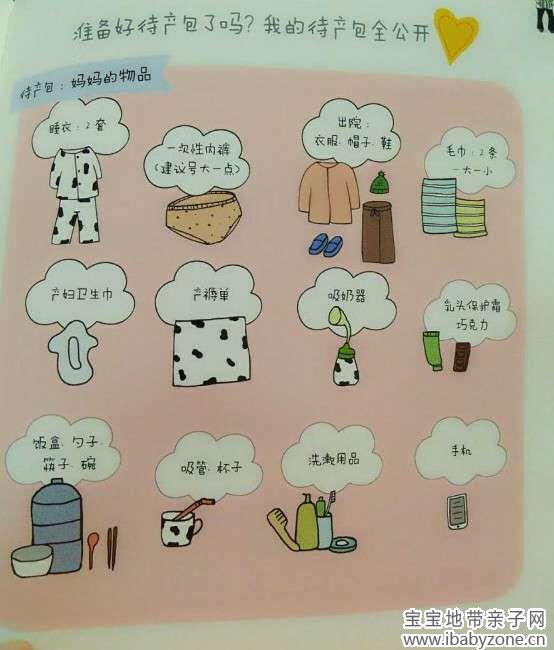 准备好待产包了吗?我的待产包全公开
待产包:妈妈的物品
睡衣:2套
一次性内裤
(建议号大一点)
出院:
衣服.帽子.鞋
毛巾:2条
一大一小
产妇卫生巾
产褥单
吸奶器
乳头保护霜
巧克力
饭盒.勺子.
筷子.碗
吸管.杯子
洗漱用品
手机
宝宝地带亲子网
www.ibabyzone.cn